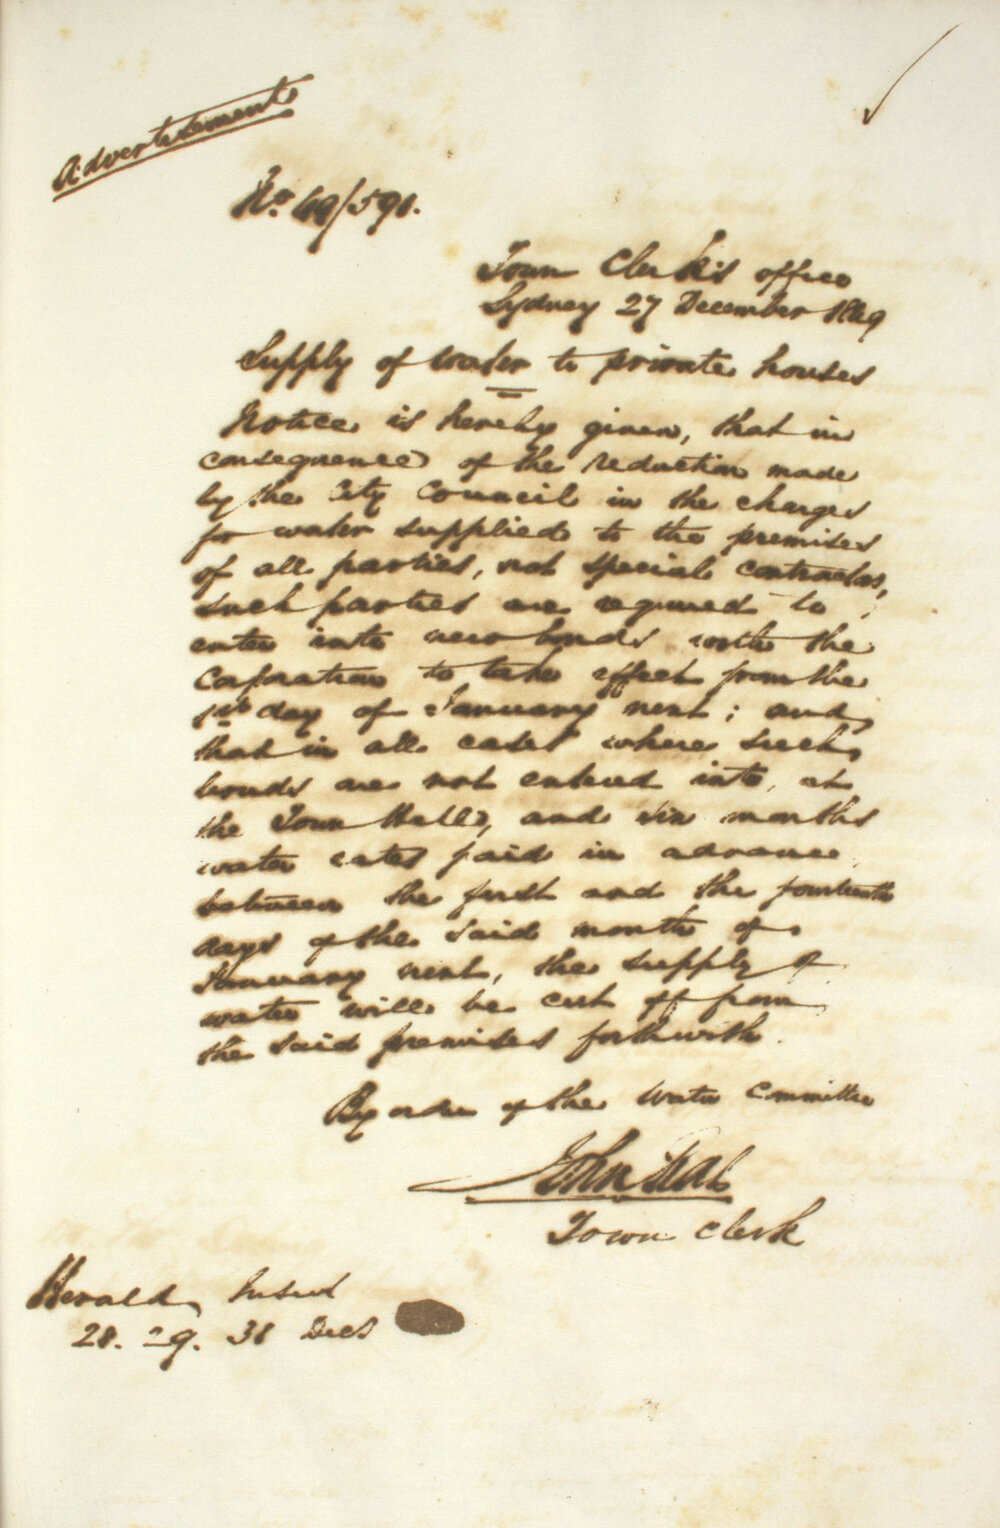 Advertisement
No. 49/591.
Town Clerk's office
Sydney 27 December 1849
Supply of water to private houses
Notice is hereby given, that in
consequence of the reduction made
by the City Council in the charges
for water supplied to the premises
of all parties, not special contractors,
such parties are required to
enter into new bonds with the
Corporation to take effect from the
1st day of January next; and
that in all cases where such
bonds are not entered into, at
the Town Hall, and six months
water rates paid in advance
between the first and the fourteenth
days of the said month of
January next, the supply of
water will be cut off from
the said premises forthwith.
By order of the Water Committee
John
Town Clerk
Herald Insert
28. 29. 31 Decr